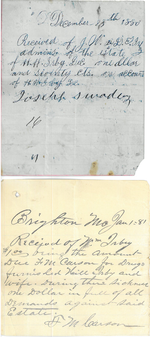 December 15th 1880
Received of J. W. & D. E. Irby
admins of the Estate
of H H Irby Dec one dollar
and seventy cts. on account
of H H Irby Dec
Joseph
16
Brighton Mo Jan 1 81
Received of Irby
being the amount
Due F M Carson for drugs
furnished Irby and
wife during
Dollar in full of all
Demands against said
Estate.
F M Carson